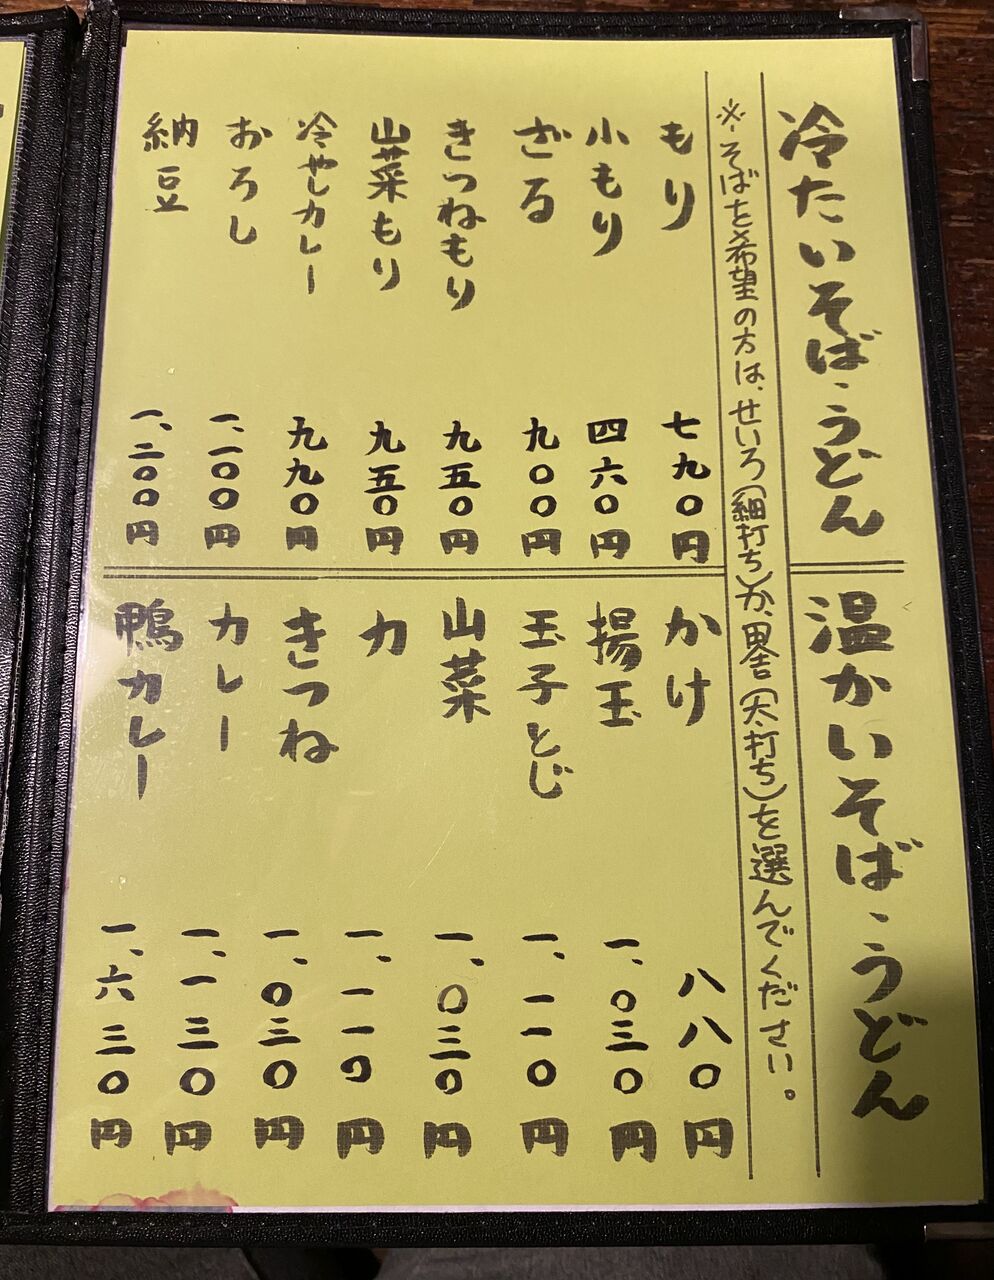 冷たいそば・うどん
※そばを希望の方は、せいろ(細打ち)か、田舎(太打ち)を選んでください。
もり 七九〇円
小もり 四六〇円
ざる 九〇〇円
きつねもり 九五〇円
山菜もり 九五〇円
冷やしカレー 九九〇円
おろし 一、一〇〇円
納豆 一、二〇〇円
温かいそば・うどん
かけ 八八〇円
揚玉 一、〇三〇円
玉子とじ 一、一一〇円
山菜 一、〇三〇円
力 一、一一〇円
きつね 一、〇三〇円
カレー 一、一三〇円
鴨カレー 一、六三〇円